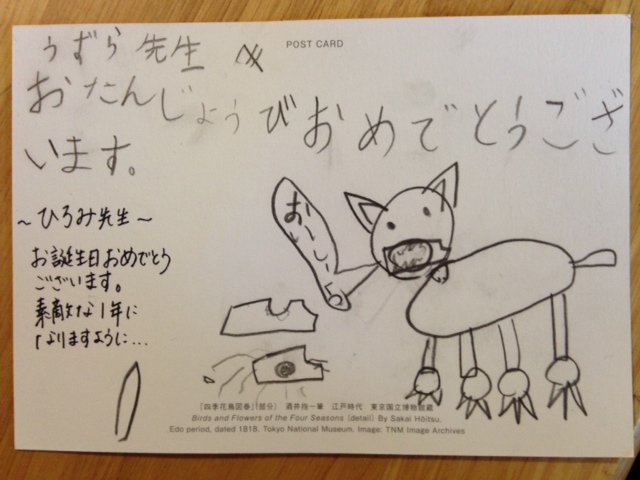 POST CARD
うずら先生
おたんじょうびおめでとうござ
います。
~ひろみ先生~
お誕生日おめでとう
ございます。
素敵な1年に
なりますように...
おいしい
「四季花鳥図巻」(部分) 酒井抱一筆 江戸時代 東京国立博物館蔵
Birds and Flowers of the Four Seasons (detail) By Sakai Hōitsu.
Edo period, dated 1818. Tokyo National Museum. Image: TNM Image Archives